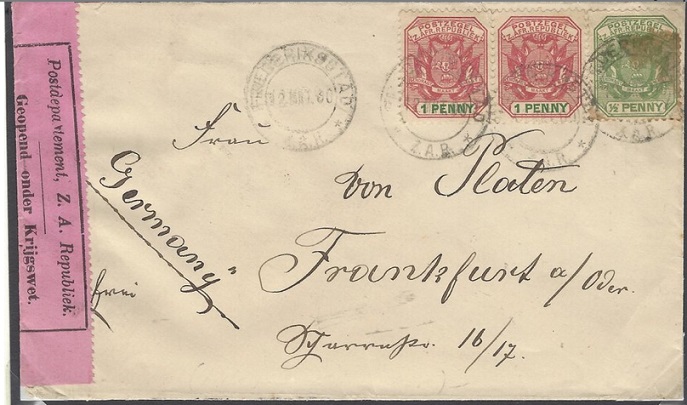 Postdepartement, Z. A. Republiek.
Geopend onder Krijgswet.
POSTZEGEL
Z. AFR. REPUBLIEK
1 PENNY
POSTZEGEL
Z. AFR. REPUBLIEK
1 PENNY
POSTZEGEL
Z. AFR. REPUBLIEK
½ PENNY
Z.A.R.
Z.A.R.
Z.A.R.
Frau
von Platen
Germany"
Frankfurt a/Oder.
frei
Scharrnstr. 16/17.